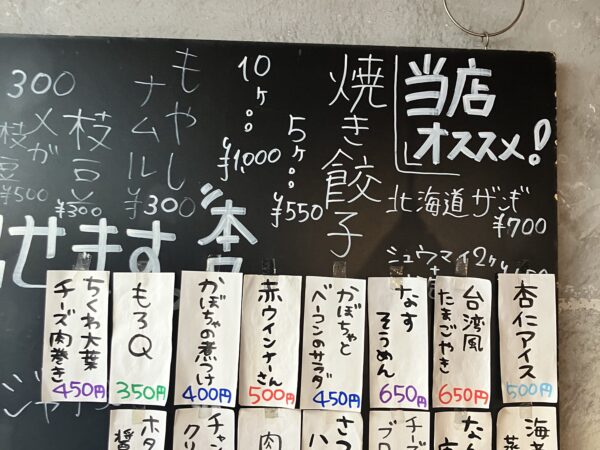 当店
オススメ!
北海道ザンギ
¥700
シュウマイ2ヶ
焼き餃子
5ヶ
¥550
10ヶ
¥1,000
もやし
ナムル
¥300
枝豆
¥300
300
メガ
枝豆
¥500
せます
本
杏仁アイス
500円
台湾風
たまごやき
650円
なす
そうめん
650円
かぼちゃと
ベーコンのサラダ
450円
赤ウインナーさん
500円
かぼちゃの煮つけ
400円
もろQ
350円
ちくわ大葉
チーズ肉巻き
450円
海老
蒸
なん
チーズ
ブロ
さつ
ハ
肉
チャン
クリ
ホタ
醤